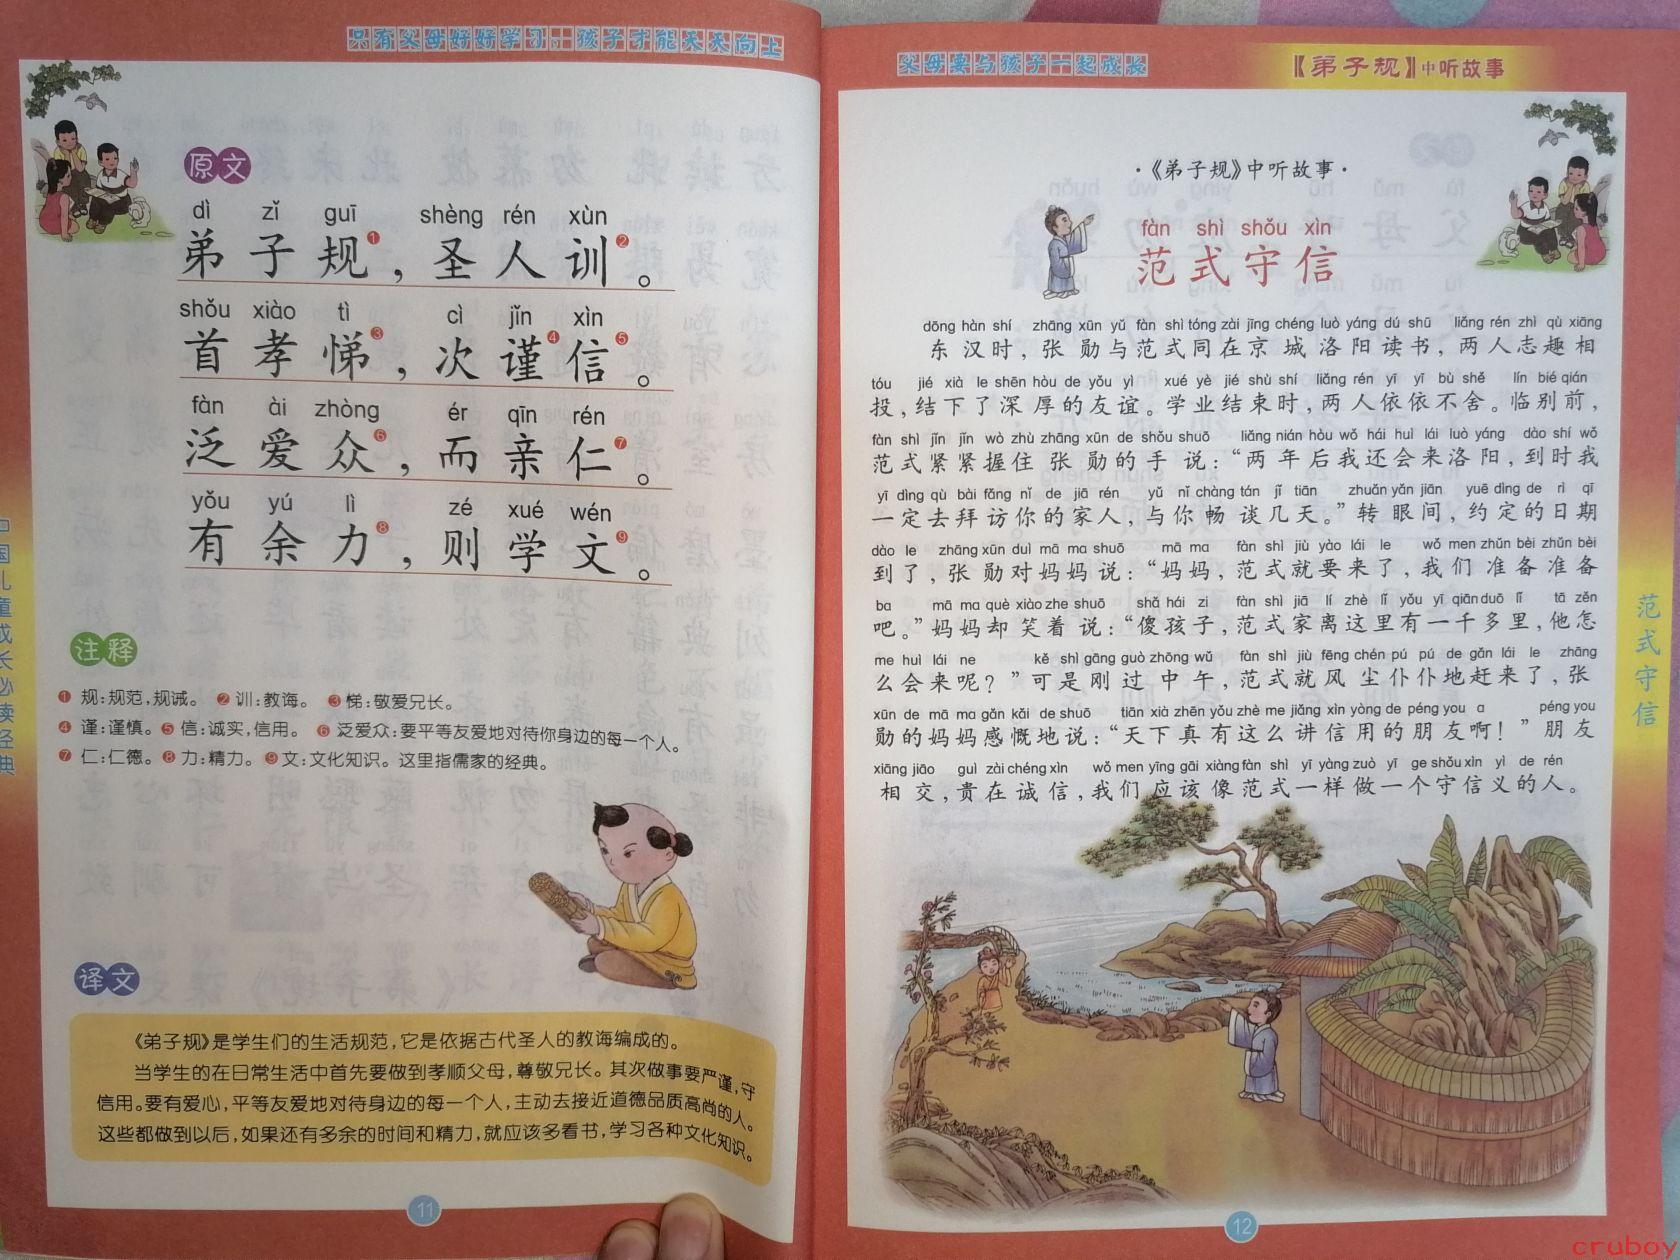 只有父母好好学习，孩子才能天天向上
原文
dì zǐ guī shèng rén xùn
弟子规❶，圣人训❷。
shǒu xiào tì cì jǐn xìn
首孝悌❸，次谨❹信❺。
fàn ài zhòng ér qīn rén
泛爱众❻，而亲仁❼。
yǒu yú lì zé xué wén
有余力❽，则学文❾。
注释
❶ 规：规范，规诫。 ❷ 训：教诲。 ❸ 悌：敬爱兄长。
❹ 谨：谨慎。 ❺ 信：诚实，信用。 ❻ 泛爱众：要平等友爱地对待你身边的每一个人。
❼ 仁：仁德。 ❽ 力：精力。 ❾ 文：文化知识。这里指儒家的经典。
译文
《弟子规》是学生们的生活规范，它是依据古代圣人的教诲编成的。
当学生的在日常生活中首先要做到孝顺父母，尊敬兄长。其次做事要严谨，守
信用。要有爱心，平等友爱地对待身边的每一个人，主动去接近道德品质高尚的人。
这些都做到以后，如果还有多余的时间和精力，就应该多看书，学习各种文化知识。
中国儿童成长必读经典
11
父母要与孩子一起成长
【弟子规】中听故事
·《弟子规》中听故事·
fàn shì shǒu xìn
范式守信
dōng hàn shí zhāng xūn yǔ fàn shì tóng zài jīng chéng luò yáng dú shū liǎng rén zhì qù xiāng
东汉时，张勋与范式同在京城洛阳读书，两人志趣相
tóu jié xià le shēn hòu de yǒu yì xué yè jié shù shí liǎng rén yī yī bù shě lín bié qián
投，结下了深厚的友谊。学业结束时，两人依依不舍。临别前，
fàn shì jǐn jǐn wò zhù zhāng xūn de shǒu shuō liǎng nián hòu wǒ hái huì lái luò yáng dào shí wǒ
范式紧紧握住张勋的手说：“两年后我还会来洛阳，到时我
yī dìng qù bài fǎng nǐ de jiā rén yǔ nǐ chàng tán jǐ tiān zhuǎn yǎn jiān yuē dìng de rì qī
一定去拜访你的家人，与你畅谈几天。”转眼间，约定的日期
dào le zhāng xūn duì mā ma shuō mā ma fàn shì jiù yào lái le wǒ men zhǔn bèi zhǔn bèi
到了，张勋对妈妈说：“妈妈，范式就要来了，我们准备准备
ba mā ma què xiào zhe shuō shǎ hái zi fàn shì jiā lí zhè lǐ yǒu yī qiān duō lǐ tā zěn
吧。”妈妈却笑着说：“傻孩子，范式家离这里有一千多里，他怎
me huì lái ne kě shì gāng guò zhōng wǔ fàn shì jiù fēng chén pú pú de gǎn lái le zhāng
么会来呢？”可是刚过中午，范式就风尘仆仆地赶来了，张
xūn de mā ma gǎn kǎi de shuō tiān xià zhēn yǒu zhè me jiǎng xìn yòng de péng you a péng you
勋的妈妈感慨地说：“天下真有这么讲信用的朋友啊！”朋友
xiāng jiāo guì zài chéng xìn wǒ men yīng gāi xiàng fàn shì yī yàng zuò yī ge shǒu xìn yì de rén
相交，贵在诚信，我们应该像范式一样做一个守信义的人。
范式守信
12
cruboy